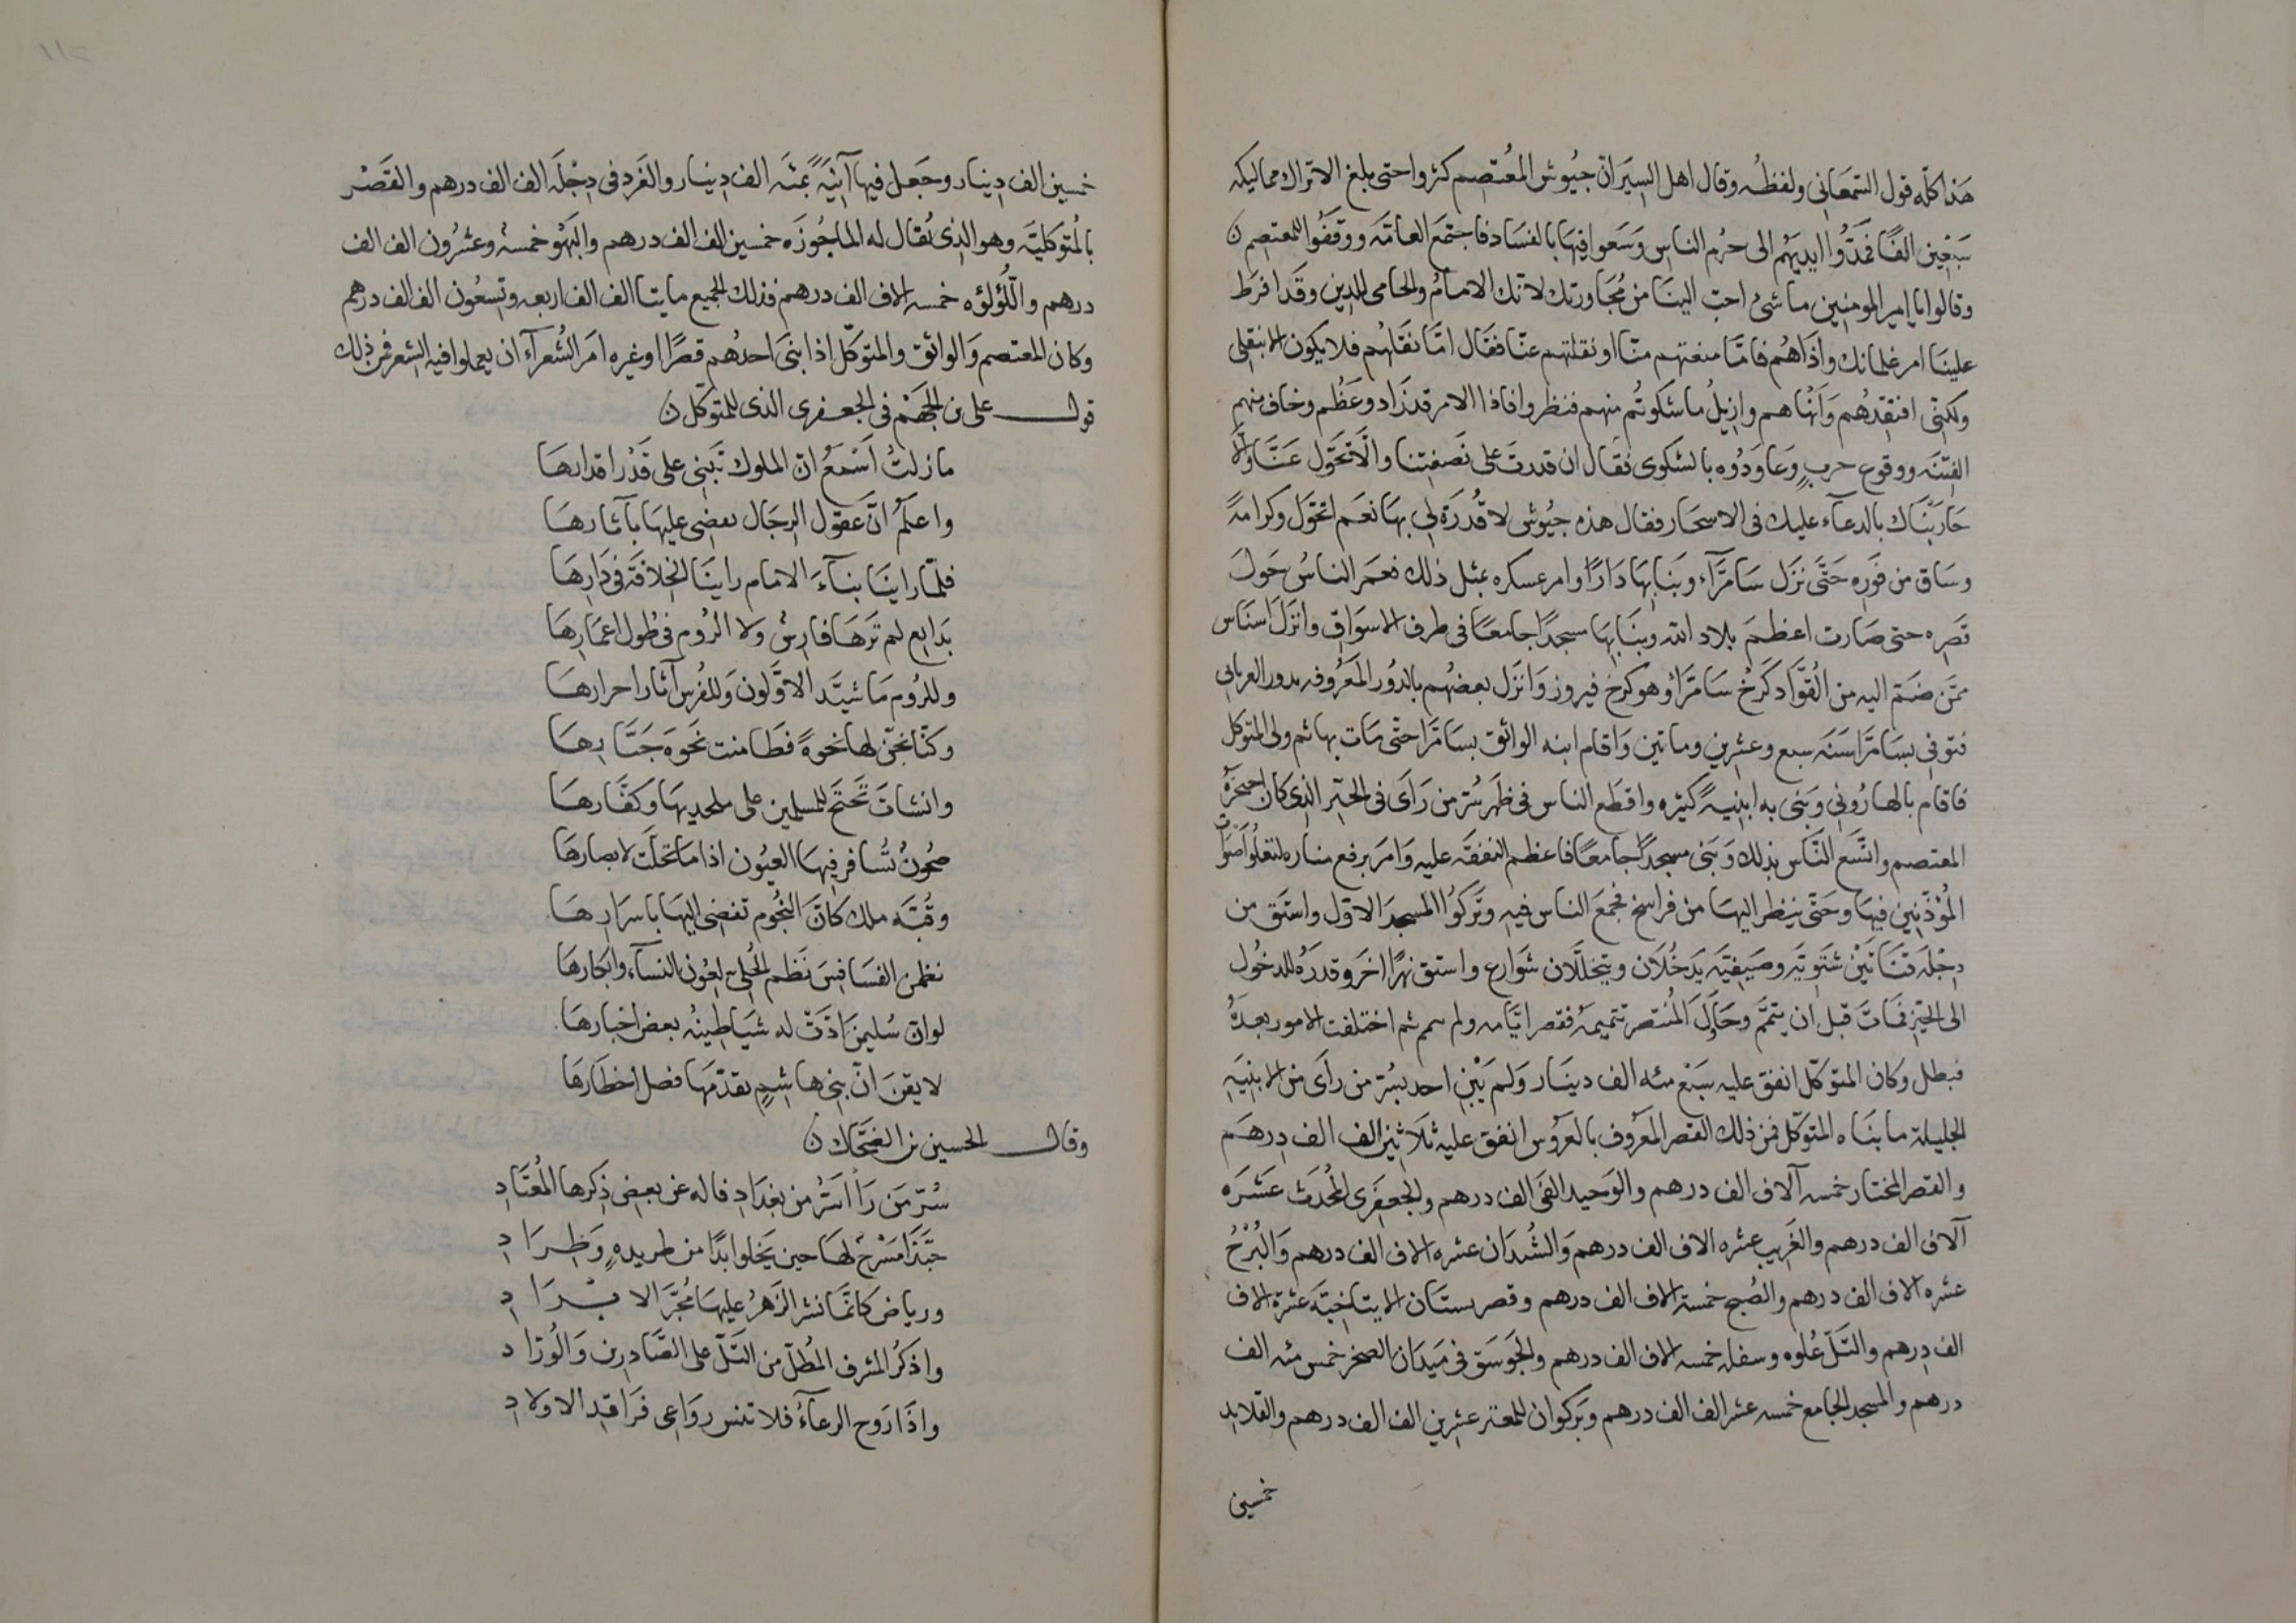 هذا كلّه قول السّمعاني ولفظه وقال اهل السِيَر انّ جيُوش المُعتصم كثروا حتى بلغ الاتراك مماليكه
سَبْعِين الفًا فمَدُّوا ايديهُم الى حرُم الناس وَسَعوا فيها بالفسَاد فاجتمَع العامّه ووقفُوا للمعتصم ن
وقالوا يا امير المومنين ما شئ احب الينا من مُجَاورتك لانّك الامامُ والحامى للدين وقد افرط
علينَا امر غلمانك واذَاهُم فامّا منعتهم منّا او نقلتهم عنّا فقال امّا نقلهُم فلا يكون الا بنقلى
ولكنّى افتقِدُهُم وَانهَاهم وازيلُ ما شكوتُم منهم فنظروا فاذا الامر قد زاد وعَظُم وخاف منهم
الفِتنَه ووقوع حربٍ وَعاوَدُوه بالشكوى فقال ان قدرتَ على نَصَفتِنا والّا تحَوَّل عَنَّا والّا
حَارَبْنَاك بالدعآء عليك فى الاسحَار فقال هذه جيُوش لا قُدرَة لِى بهَا نعَم اتحَوّل وكرامَةً
وسَاق من فَوره حَتَّى نزَل سَامرَّآء وبنَا بها دَارًا وامر عسكره بمثل ذلك فعمَر الناسُ حَولَ
قصره حتى صَارت اعظمَ بلاد الله وبنَا بها مسجدًا جامعًا فى طرف الاسوَاق وانزَل اسنَاس
ممَّن ضَمّ اليه من القوَّاد كَرخ سَامرَّا وهو كرخ فيروز وَانزَل بعضهُم بالدُور المعَرُوفه بدور العربانى
فتوفى بسَامرَّا سَنَه سبع وعشرين وماتين وَاقام ابنه الواثق بسَامرَّا حتّى مَات بها ثم ولى المتوكل
فاقام بالهارُونى وَبنى به ابنيةً كثيره واقطع الناس فى ظهر سُر من رَأى فى الحَيّر الذى كان احتجزَهُ
المعتصم واتسَع النَّاس بذلك وَبَنى مسجدًا جامعًا فاعظم النفقَه عليه وَامَر برفع مناره لتعلُو اصوَات
المُؤذّنِين فيها وحَتّى ينظر اليهَا من فراسخ فجمعَ الناس فيه وتَركوُا المسجدَ الاوّل واشتَق من
دِجْلَه قنَاتَين شتَويّه وصَيفِيّه يَدخُلَان ويتخلّلان شوَارع واستق نهرًا اخَر وقدرَهُ للدخُول
الى الحَيّز فمَاتَ قبل ان يتمَّم وحَاوَل المُنتصر تتميمهُ فقصر ايّامه ولم يتم ثم اختلفت الامور بعدَهُ
فبطل وكان المتوكّل انفق عليه سَبْع مئه الف دينَار وَلم يَبْنِ احد بسُرّ من رأى من الابنيَه
الجليلة ما بنَاه المتوكّل فمن ذلك القصر المعَرُوف بالعرُوس انفق عليه ثلَاثين الف الف دِرهَم
والقصر المختار خمسه آلاف الف درهم والوَحيد الفَى الف درهم والجعفَرى المُحدث عَشَره
آلاف الف درهم والغَريب عشره الاف الف درهم وَالشُندَان عشره الاف الف درهم وَالبُرْجُ
عشره الاف الف درهم والصُبح خمسة الاف الف درهم وقصر بستَان الايتاخيَّه عشرة الاف
الف دِرهم والتَلّ عُلوه وسفله خمسه الاف الف درهم والجَوسَق فى ميَدان الصخر خمس مئه الف
درهم والمسجد الجامع خمسه عشر الف الف درهم وبَركوان للمعتز عشرين الف الف درهم والقلايد
خمسين
خمسين الف دِينار وجَعل فيها آنِيَةً بمئه الف دِينار والغَرد فى دِجْلَه الف الف درهم والقَصْر
بالمُتوَكلِيَّه وهو الذِى يُقال له الماجُوزَه خمسين الف الف درهم والبَهْو خمسهُ وعشرُون الف الف
درهم واللُؤلؤه خمسه الاف الف درهم فذلك الجميع مايتا الف الف اربعه وتِسعُون الف الف درهم
وكان المعتصم وَالواثق والمتَوكّل اذا بنى احدهُم قصرًا او غيره امَر الشُعرآء ان يعملوا فيه الشعر فمن ذلك
قول على بن الجَهْم فى الجعفرى الذى للمتوكّل ن
مازلتُ اَسْمَعُ انّ الملوك تَبنِى على قَدْر اقدارهَا
واعلَمُ انّ عقول الرجَال يقضى عليهَا بآثارهَا
فلمّا راينَا بنآءَ الامام راينَا الخِلافَة فى دَارِهَا
بَدايع لم تَرهَا فارِسُ ولا الرُوم فى طُول اعمَارهَا
وللرُوم مَا شيَّد الاوَّلون وَللفُرس آثار احرارهَا
وكنّا نحِسّ لها نخوةً فطَامنت نَحوَه جَبَّارهَا
وانشاتَ تَحتَجّ للمسلمين على ملحديهَا وكفَّارهَا
صُحونُ تُسافر فيهَا العيُون اذا مَا تجلَّت لابصارهَا
وقُبَّه ملك كَانّ النجُوم تفضى اليهَا باسرَارهَا
نظمن الفسَافِسَ نَظم الحُلِىّ لعُون النسآء وابكارهَا
لو انّ سُليمَن ادَّتْ له شيَاطينُه بعض اخبارهَا
لايقن انّ بنِى هاشمٍ يقدّمهَا فضل اخطَارهَا
وقال الحسين بن الضحَّاك ن
سُرّ مَن رَا اسَرُّ من بغدَادِ فاله عن بعض ذِكرها المُعتَادِ
حَبَّذا مَسْرَحُ لهَا حين يَخلو ابدًا من طريدهٍ وَطِرَادِ
ورياض كانّمَا نشر الزهرُ عليهَا مُحَبَّر الابْرَادِ
واذكرُ المشرف المُطلّ من التَلّ على الصَّادِرِين وَالوُرَّادِ
واذَا رَوح الرعآءُ فلا تنس روَاعِى فرَاقدِ الاولادِ